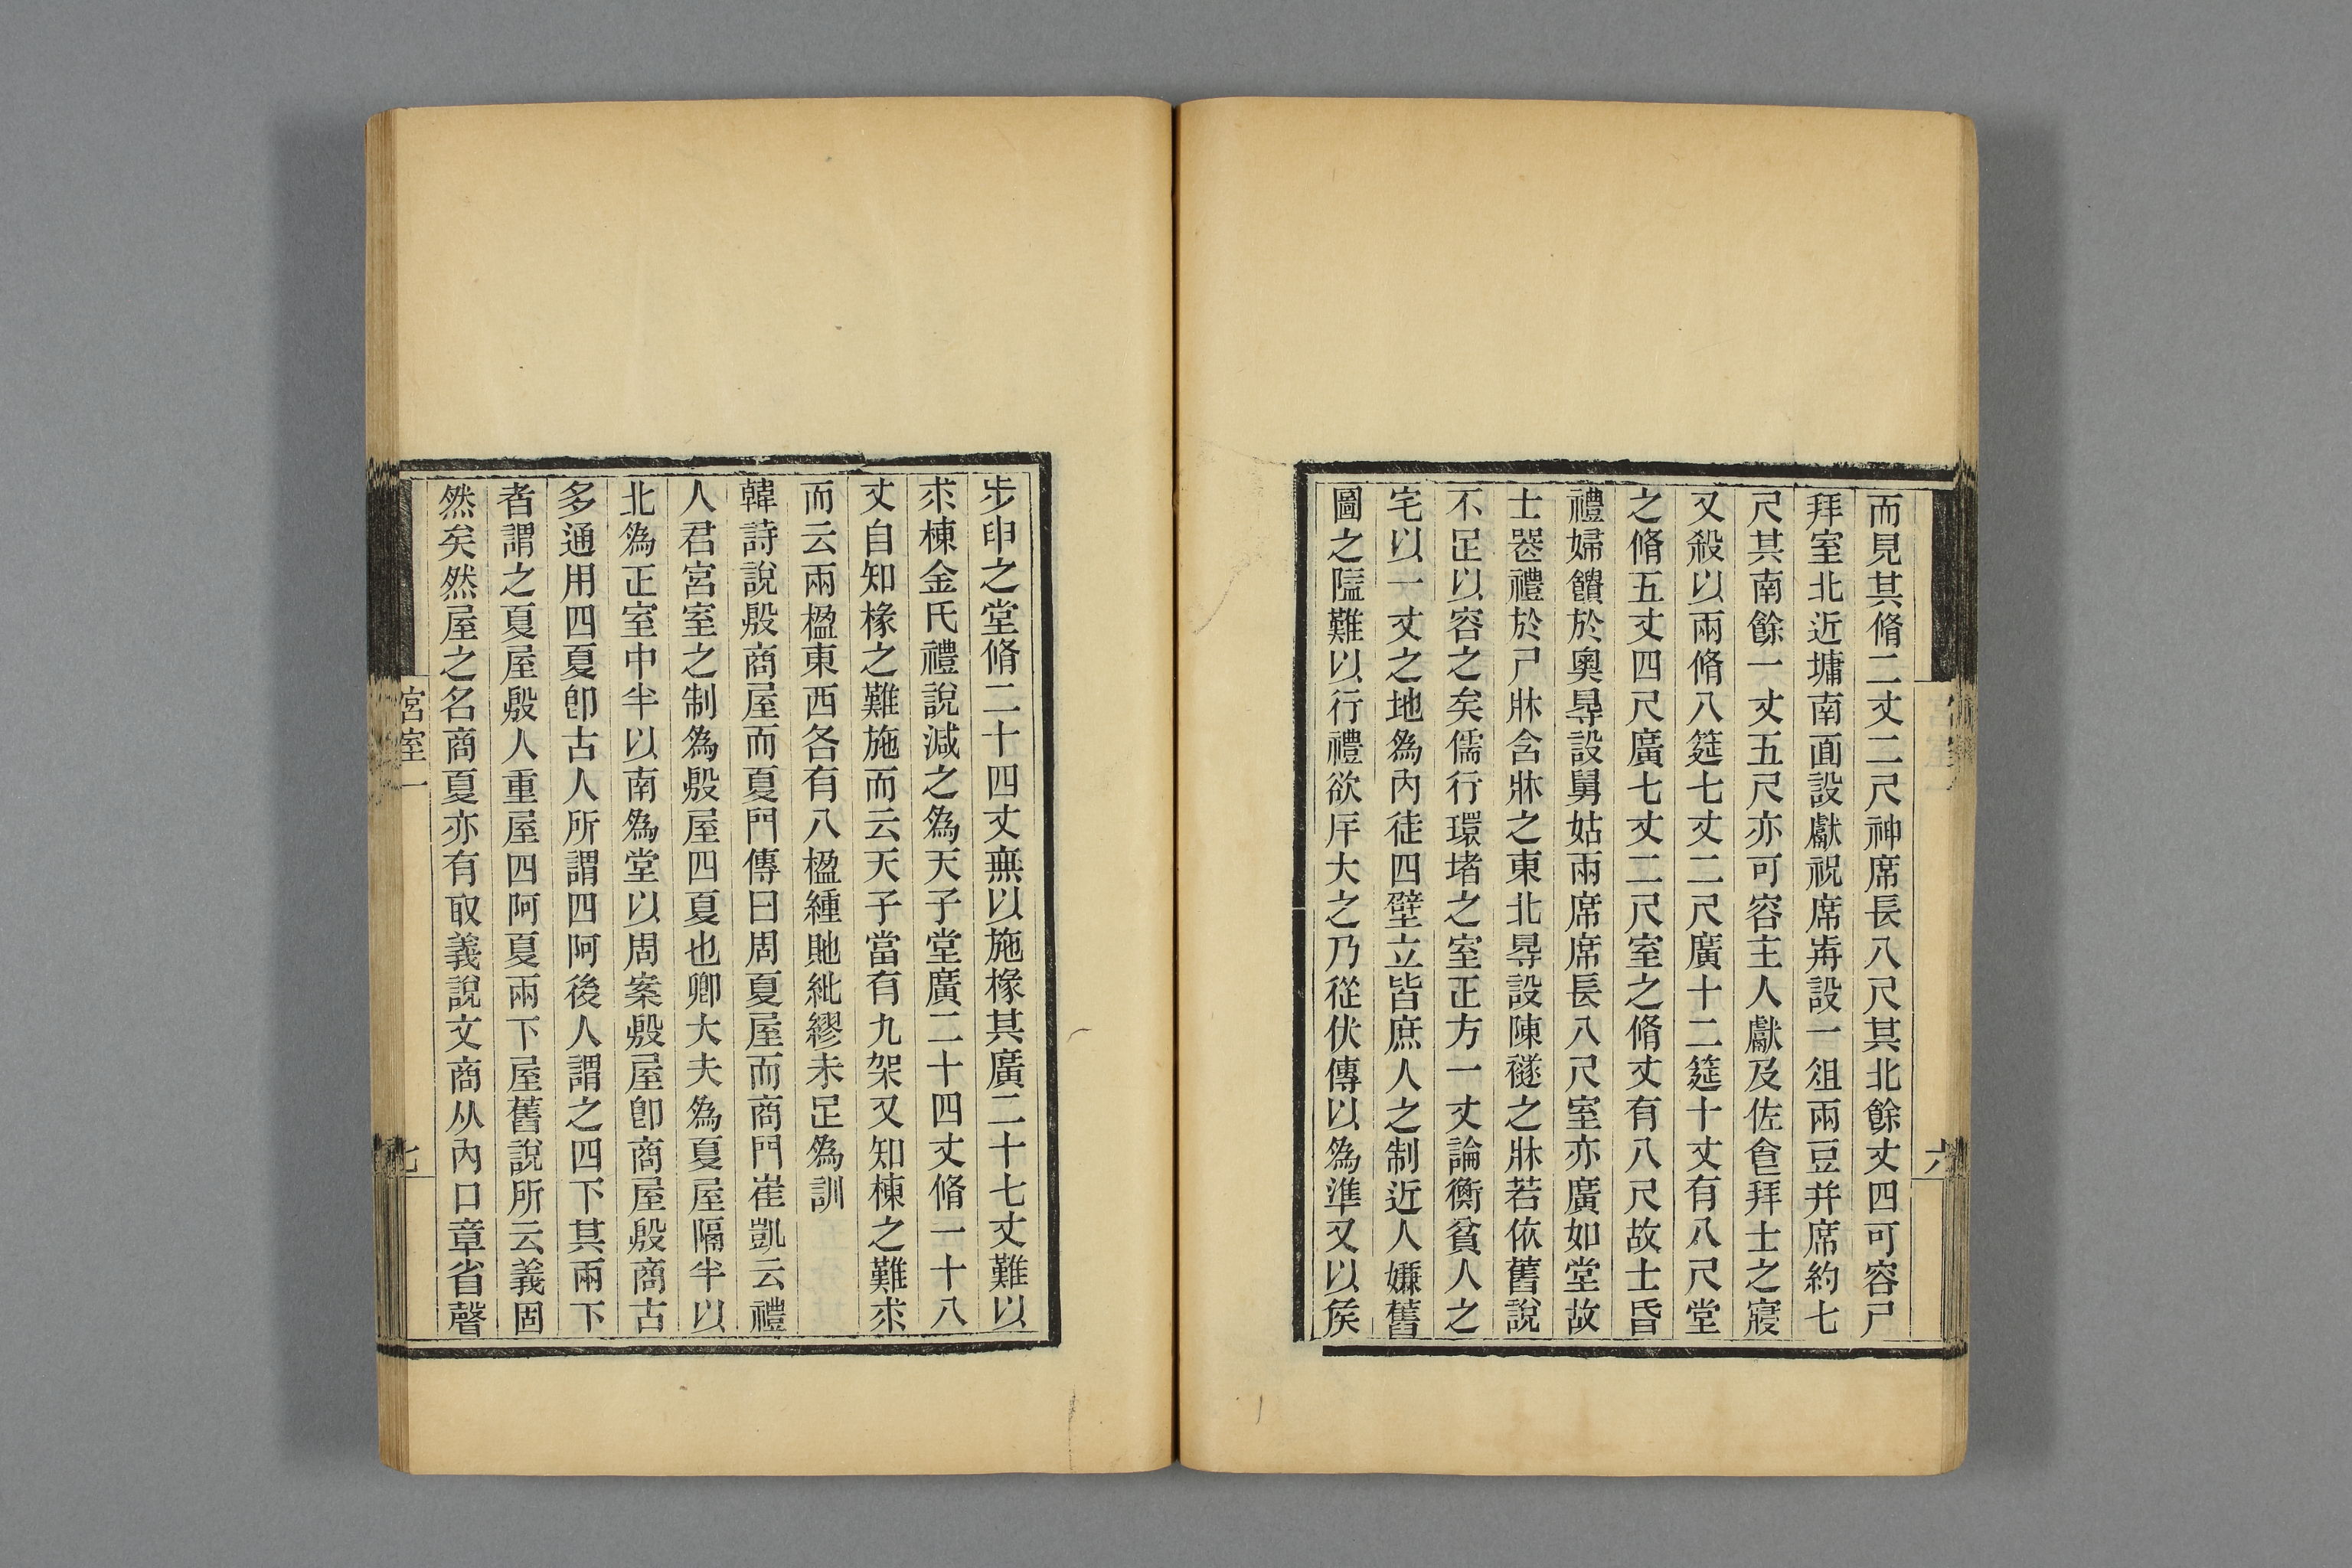 而見其脩二丈二尺神席長八尺其北餘丈四可容尸
拜室北近墉南面設獻祝席歬設一俎兩豆并席約七
尺其南餘一丈五尺亦可容主人獻及佐㑹拜士之寢
又殺以兩脩八筵七丈二尺廣十二筵十丈有八尺堂
之脩五丈四尺廣七丈二尺室之脩丈有八尺故士昏
禮婦饋於奧㝵設舅姑兩席席長八尺室亦廣如堂故
士喪禮於尸牀含牀之東北㝵設陳襚之牀若依舊說
不足以容之矣儒行環堵之室正方一丈論衡貧人之
宅以一丈之地為內徒四壁立皆庶人之制近人嫌舊
圖之隘難以行禮欲庠大之乃從伏傳以為準又以矦
六
步申之堂脩二十四丈無以施椽其廣二十七丈難以
求棟金氏禮說減之為天子堂廣二十四丈脩一十八
丈自知椽之難施而云天子當有九架又知棟之難求
而云兩楹東西各有八楹緟貤紕繆未足為訓
韓詩說殷商屋而夏門傳曰周夏屋而商門崔凱云禮
人君宮室之制為殷屋四夏也卿大夫為夏屋隔半以
北為正室中半以南為堂以周案殷屋卽商屋殷商古
多通用四夏卽古人所謂四阿後人謂之四下其兩下
者謂之夏屋殷人重屋四阿夏兩下屋舊說所云義固
然矣然屋之名商夏亦有取義說文商从內口章省聲
宮室一
七